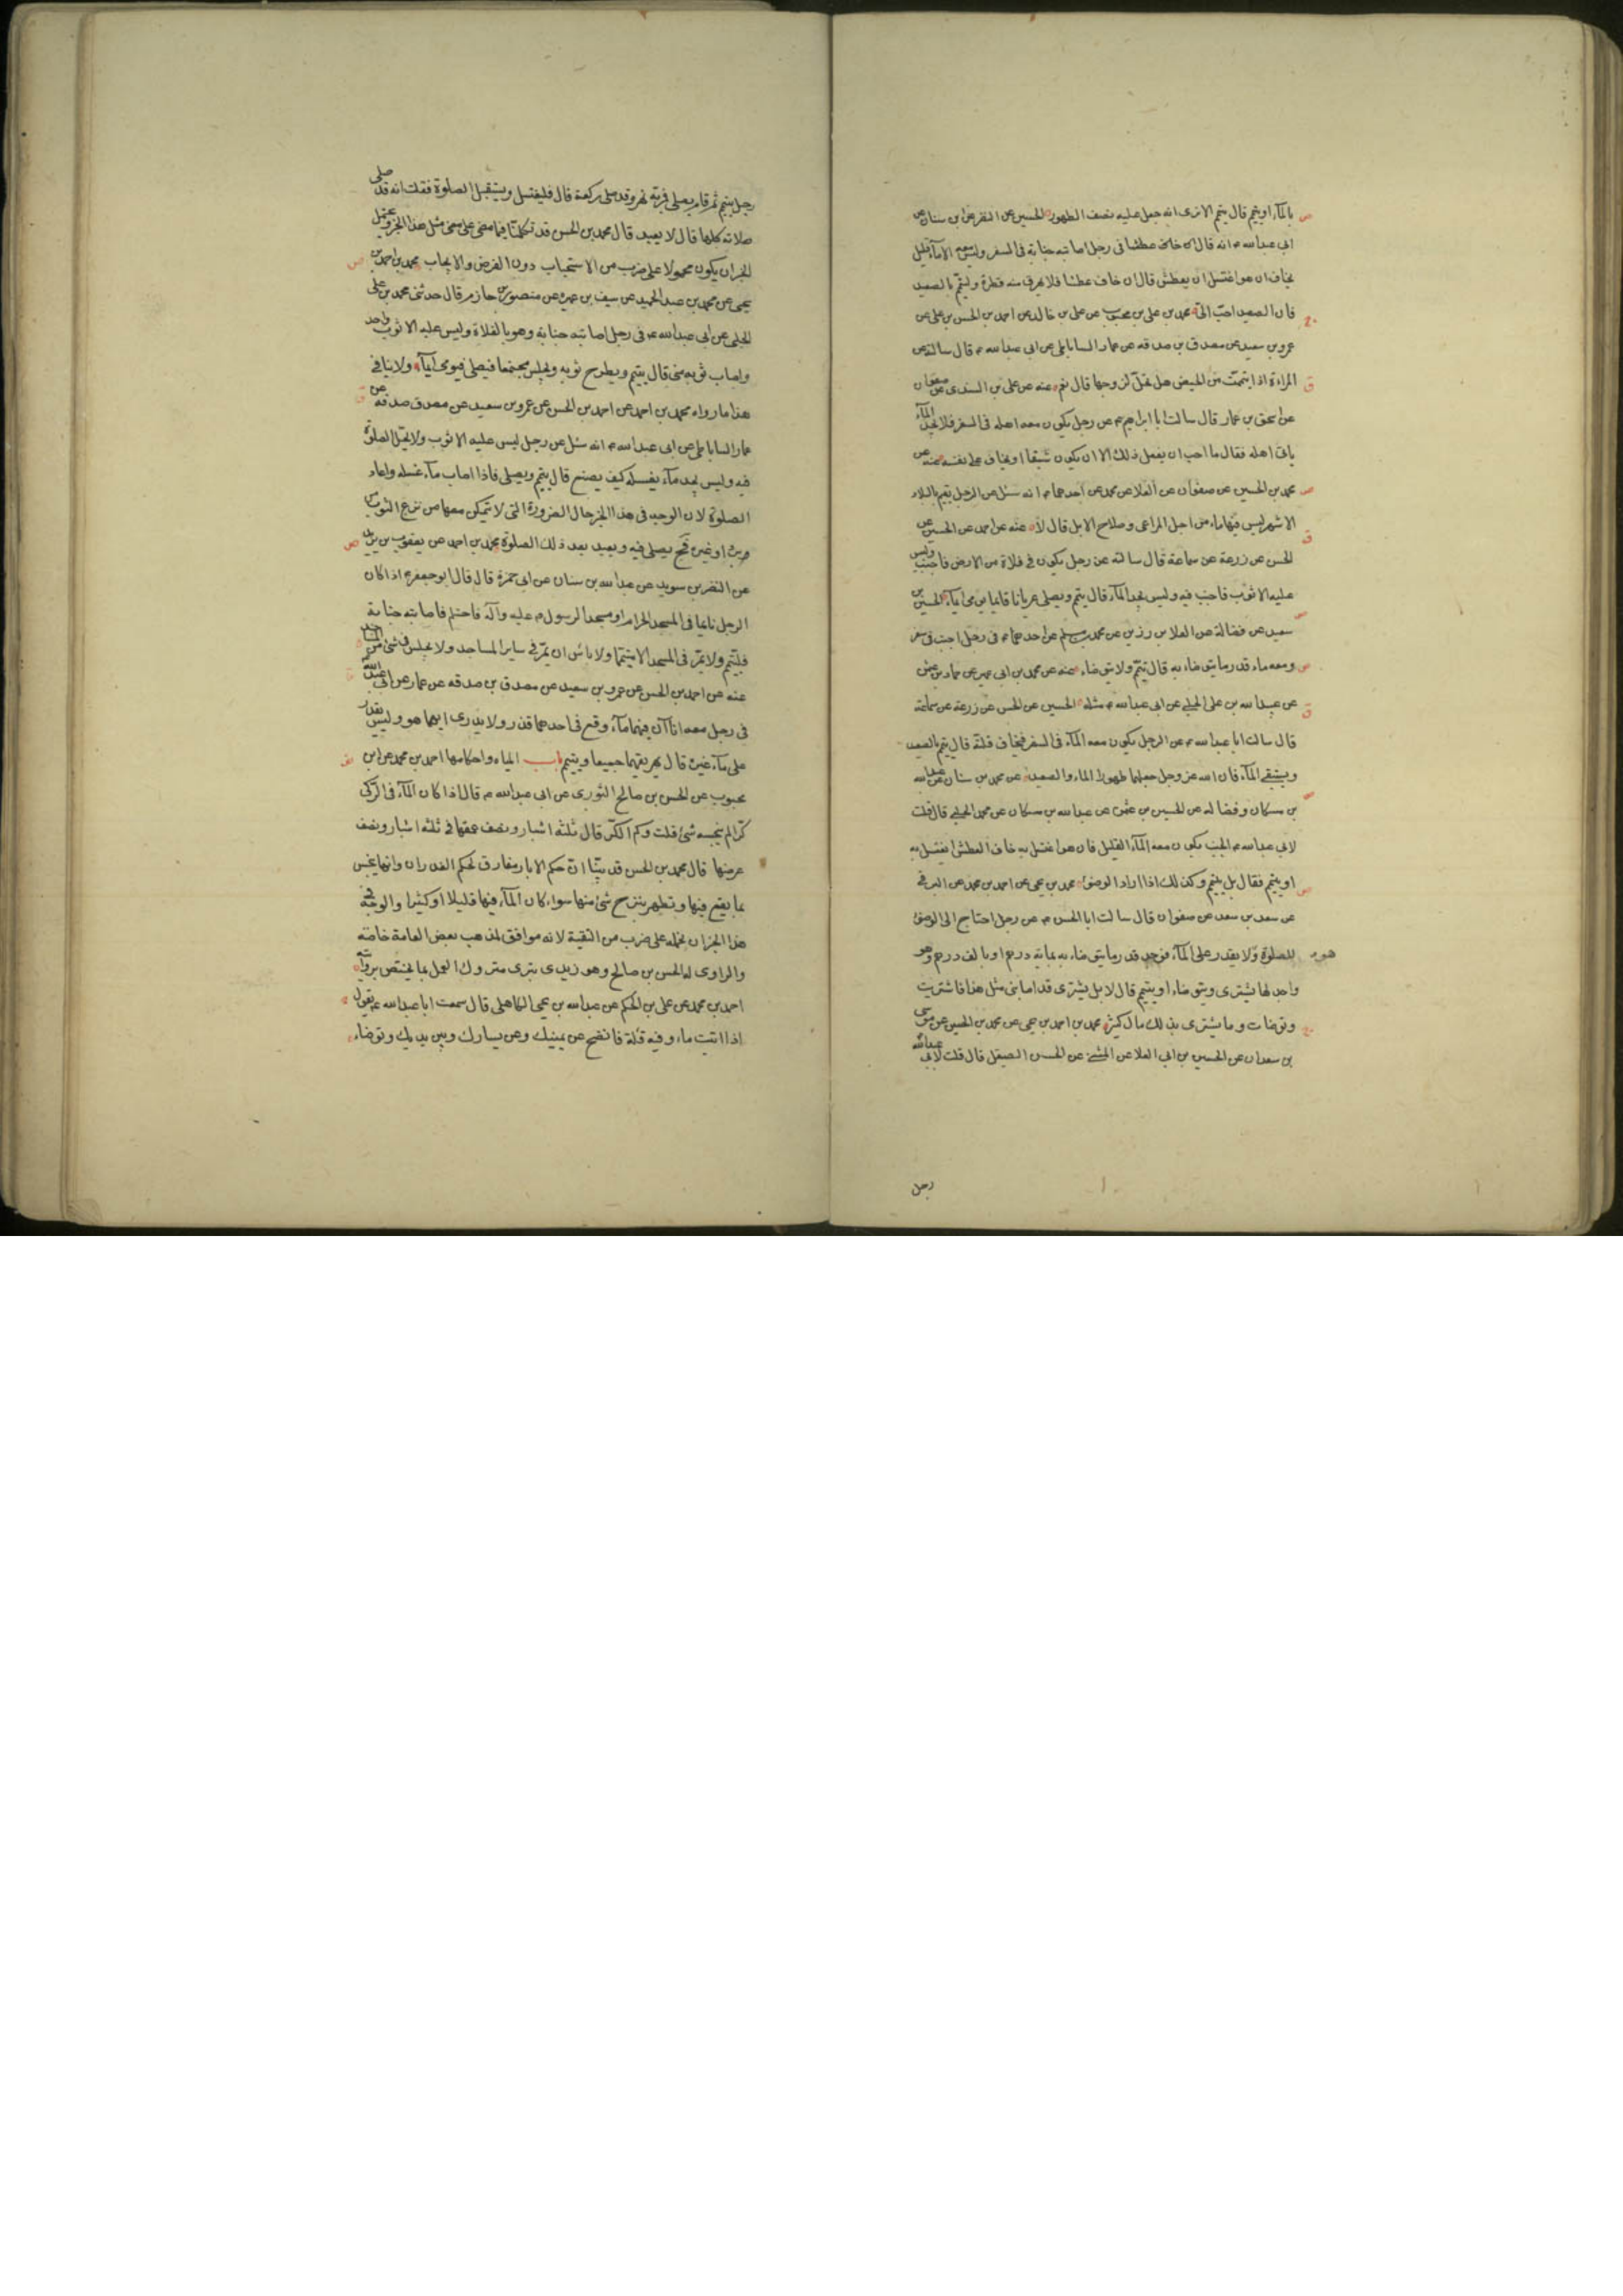 بالمآء او يتيمم قال يتيمم الا ترى انه جعل عليه نصف الطهور الحسين عن النضر عن ابن سنان عن
ابي عبدالله ع انه قال في رجل اصابته جنابة في السفر وليس معه الا مآء قليل
يخاف ان هو اغتسل ان يعطش قال ان خاف عطشا فلا يهرق منه قطرة وليتيمم بالصعيد
فان الصعيد احبّ اليّ محمد بن علي بن محبوب عن علي بن خالد عن احمد بن الحسن بن علي عن
عمرو بن سعيد عن مصدق بن صدقه عن عمار الساباطي عن ابي عبدالله ع قال سالته عن
المراة اذا تيممت من الحيض هل تحلّ لزوجها قال نعم عنه عن علي بن السندي عن صفوان
عن اسحق بن عمار قال سالت ابا ابراهيم ع عن رجل يكون معه اهله في السفر فلا يجد المآء
ياتي اهله فقال ما احب ان يفعل ذلك الا ان يكون شبقا او يخاف على نفسه عنه عن
محمد بن الحسين عن صفوان عن العلا عن محمد عن احدهما ع انه سئل عن الرجل يقيم بالبلاد
الاشهر ليس فيها ماء من اجل المراعي وصلاح الابل قال لا عنه عن احمد عن الحسين عن
الحسن عن زرعة عن سماعة قال سالته عن رجل يكون في فلاة من الارض فاجنب وليس
عليه الا ثوب فاجنب فيه وليس يجد المآء قال يتيمم ويصلي عريانا قائما يومي ايمآء الحسين بن
سعيد عن فضالة عن العلا بن رزين عن محمد بن مسلم عن احدهما ع في رجل اجنب في سفر
ومعه ماء قدر ما يتوضاء به قال يتيمم ولا يتوضاء عنه عن محمد بن ابي عمير عن حماد بن عثمن
عن عبيدالله بن علي الحلبي عن ابي عبدالله ع مثله الحسين عن الحسن عن زرعة عن سماعة
قال سالت ابا عبدالله ع عن الرجل يكون معه المآء في السفر فيخاف قلته قال يتيمم بالصعيد
ويستبقي المآء فان الله عز وجل جعلهما طهورا الماء والصعيد عن محمد بن سنان عن عبدالله
بن مسكان وفضاله عن الحسين بن عثمن عن عبدالله بن مسكان عن محمد الحلبي قال قلت
لابي عبدالله ع الجنب يكون معه المآء القليل فان هو اغتسل به خاف العطش ايغتسل به
او يتيمم فقال بل يتيمم وكذلك اذا اراد الوضوء محمد بن يحيى عن احمد بن محمد عن البرقي
عن سعد بن سعد عن صفوان قال سالت ابا الحسن ع عن رجل احتاج الى الوضوء
للصلوة ولا يقدر على المآء فوجد قدر ما يتوضاء به بماية درهم او بالف درهم وهو
واجد لها يشتري ويتوضاء او يتيمم قال لا بل يشتري قد اصابني مثل هذا فاشتريت
وتوضات وما يشترى بذلك مال كثير محمد بن احمد بن يحيى عن محمد بن الحسين عن موسى
بن سعدان عن الحسين بن ابي العلا عن المثنى عن الحسن الصيقل قال قلت لابي عبدالله
رجل
رجل يتيمم ثم قام يصلي فمر به نهر وقد صلى ركعة قال فليغتسل ويستقبل الصلوة فقلت انه قد صلى
صلاته كلها قال لا يعيد قال محمد بن الحسن قد تكلمنا فيما مضى على معنى مثل هذا الخبر ويحتمل
الخبر ان يكون محمولا على ضرب من الاستحباب دون الفرض والايجاب محمد بن احمد بن
يحيى عن محمد بن عبد الحميد عن سيف بن عميره عن منصور بن حازم قال حدثني محمد بن علي
الحلبي عن ابي عبدالله ع في رجل اصابته جنابة وهو بالفلاة وليس عليه الا ثوب واحد
واصاب ثوبه مني قال يتيمم ويطرح ثوبه ويجلس مجتمعا فيصلي فيومي ايمآء ولا ينافي
هذا ما رواه محمد بن احمد عن احمد بن الحسن عن عمرو بن سعيد عن مصدق صدقه عن
عمار الساباطي عن ابي عبدالله ع انه سئل عن رجل ليس عليه الا ثوب ولا تحل الصلوة
فيه وليس يجد مآء يغسله كيف يصنع قال يتيمم ويصلي فاذا اصاب مآء غسله واعاد
الصلوة لان الوجه في هذا الخبر حال الضرورة التي لا يتمكن معها من نزع الثوب من
برد او غيره فحينئذ يصلي فيه ويعيد بعد ذلك الصلوة محمد بن احمد عن يعقوب بن يزيد
عن النضر بن سويد عن عبدالله بن سنان عن ابي حمزة قال قال ابو جعفر ع اذا كان
الرجل نائما في المسجد الحرام او مسجد الرسول ع عليه وآله فاحتلم فاصابته جنابة
فليتيمم ولا يمر في المسجد الا متيمما ولا باس ان يمر في ساير المساجد ولا يجلس في شئ من المساجد
عنه عن احمد بن الحسن عن عمرو بن سعيد عن مصدق بن صدقه عن عمار عن ابي عبدالله
في رجل معه اناآن فيهما مآء وقع في احدهما قذر ولا يدري ايهما هو وليس يقدر
على مآء غيره قال يهريقهما جميعا ويتيمم باب المياه واحكامها احمد بن محمد عن ابن
محبوب عن الحسن بن صالح الثوري عن ابي عبدالله ع قال اذا كان المآء في الركي
كرا لم ينجسه شئ قلت وكم الكر قال ثلثة اشبار ونصف عمقها في ثلثة اشبار ونصف
عرضها قال محمد بن الحسن قد بيّنا ان حكم الابار مفارق لحكم الغدران وانها ينجس
بما يقع فيها وتطهر بنزح شئ منها سواء كان المآء فيها قليلا او كثيرا والوجه في
هذا الخبر ان نحمله على ضرب من التقية لانه موافق لمذهب بعض العامة خاصة
والراوي له الحسن بن صالح وهو زيدي بتري متروك العمل بما يختص بروايته
احمد بن محمد عن علي بن الحكم عن عبدالله بن يحيى الكاهلي قال سمعت ابا عبدالله ع يقول
اذا اتيت ماء وفيه قلة فانضح عن يمينك وعن يسارك وبين يديك وتوضاء